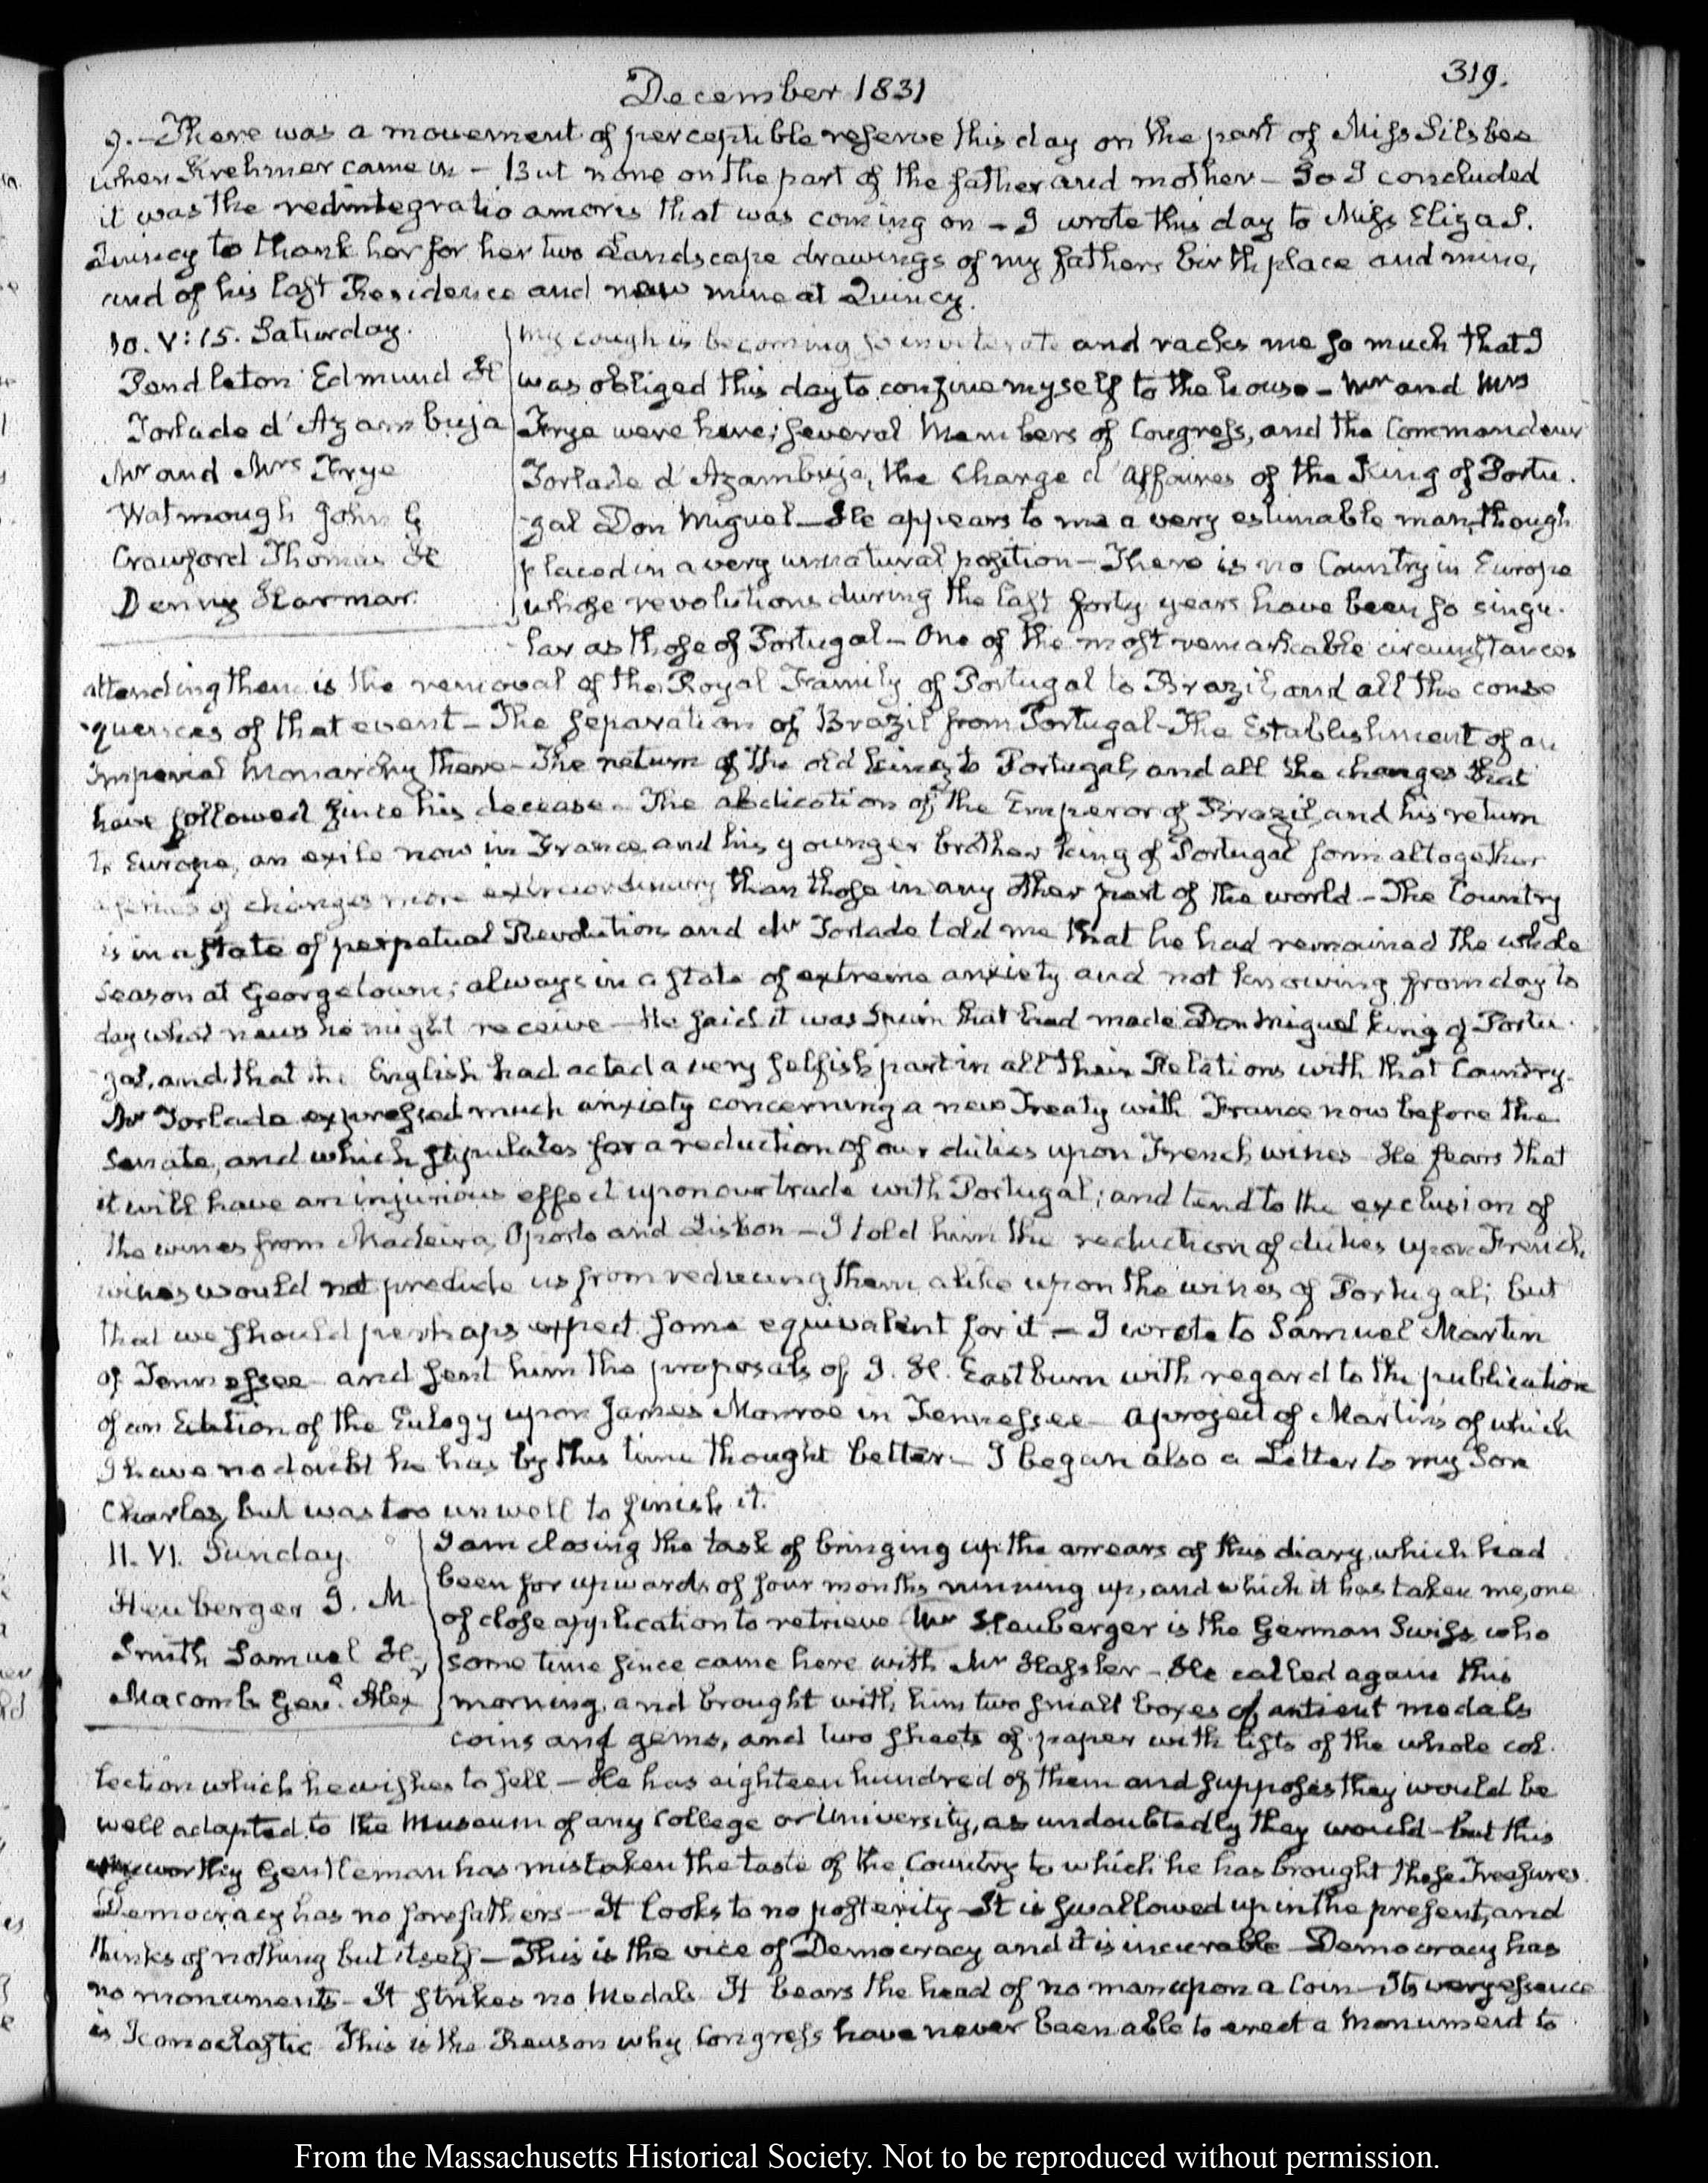 December 1831
319.
9.- There was a movement of perceptible reserve this day on the part of Miss Silsbee
when Krehmer came in - But none on the part of the father and mother - So I concluded
it was the redintegratio amoris that was coming on - I wrote this day to Miss Eliza S.
Quincy to thank her for her two Landscape drawings of my fathers birth place and mine,
and of his last Residence and now mine at Quincy.
10. V:15. Saturday.
Pendleton Edmund H
Torlade d'Azambuja
Mr and Mrs Frye
Watmough John G
Crawford Thomas H
Denny Harmar.
My cough is becoming so inveterate and racks me so much that I
was obliged this day to confine myself to the house - Mr and Mrs
Frye were here; several Members of Congress, and the Commandeur
Torlade d'Azambuja, the Charge d'Affaires of the King of Portu-
-gal Don Miguel - He appears to me a very estimable man, though
placed in a very unnatural position - There is no Country in Europe
whose revolutions during the last forty years have been so singu-
-lar as those of Portugal - One of the most remarkable circumstances
attending them is the removal of the Royal Family of Portugal to Brazil, and all the conse
-quences of that event - The separation of Brazil from Portugal - The Establishment of an
Imperial Monarchy there - The return of the old king to Portugal, and all the changes that
have followed since his decease - The abdication of the Emperor of Brazil, and his return
to Europe, an exile now in France, and his younger brother king of Portugal form altogether
a series of changes more extraordinary than those in any other part of the world. - The Country
is in a state of perpetual Revolution, and Mr Torlade told me that he had remained the whole
season at Georgetown; always in a state of extreme anxiety and not knowing from day to
day what news he might receive - He said it was Spain that had made Don Miguel king of Portu-
-gal, and that the English had acted a very selfish part in all their Relations with that Country.
Mr Torlade expressed much anxiety concerning a new Treaty with France now before the
Senate, and which stipulates for a reduction of our duties upon French wines - He fears that
it will have an injurious effect upon our trade with Portugal; and tend to the exclusion of
the wines from Madeira, Oporto and Lisbon - I told him the reduction of duties upon French
wines would not preclude us from reducing them alike upon the wines of Portugal; but
that we should perhaps expect some equivalent for it - I wrote to Samuel Martin
of Tennessee and sent him the proposals of J. H. Eastburn with regard to the publication
of an Edition of the Eulogy upon James Monroe in Tennessee - a project of Martin's of which
I have no doubt he has by this time thought better - I began also a Letter to my Son
Charles, but was too unwell to finish it.
11. VI. Sunday
Heuberger J. M
Smith Samuel H.
Macomb Genl. Alex
I am closing the task of bringing up the arrears of this diary, which had
been for upwards of four months running up, and which it has taken me, one
of close application to retrieve Mr Heuberger is the German Swiss, who
some time since came here with Mr Hassler - He called again this
morning, and brought with him two small boxes of antient medals
coins and gems, and two sheets of paper with lists of the whole col-
lection which he wishes to sell - He has eighteen hundred of them and supposes they would be
well adapted to the Museum of any College or University, as undoubtedly they would - but this
worthy Gentleman has mistaken the taste of the Country to which he has brought these Treasures.
Democracy has no forefathers - It looks to no posterity - It is swallowed up in the present, and
thinks of nothing but itself - This is the vice of Democracy and it is incurable - Democracy has
no monuments - It strikes no Medals It bears the head of no man upon a Coin - Its very essence
is Iconoclastic This is the Reason why Congress have never been able to erect a Monument to
From the Massachusetts Historical Society. Not to be reproduced without permission.